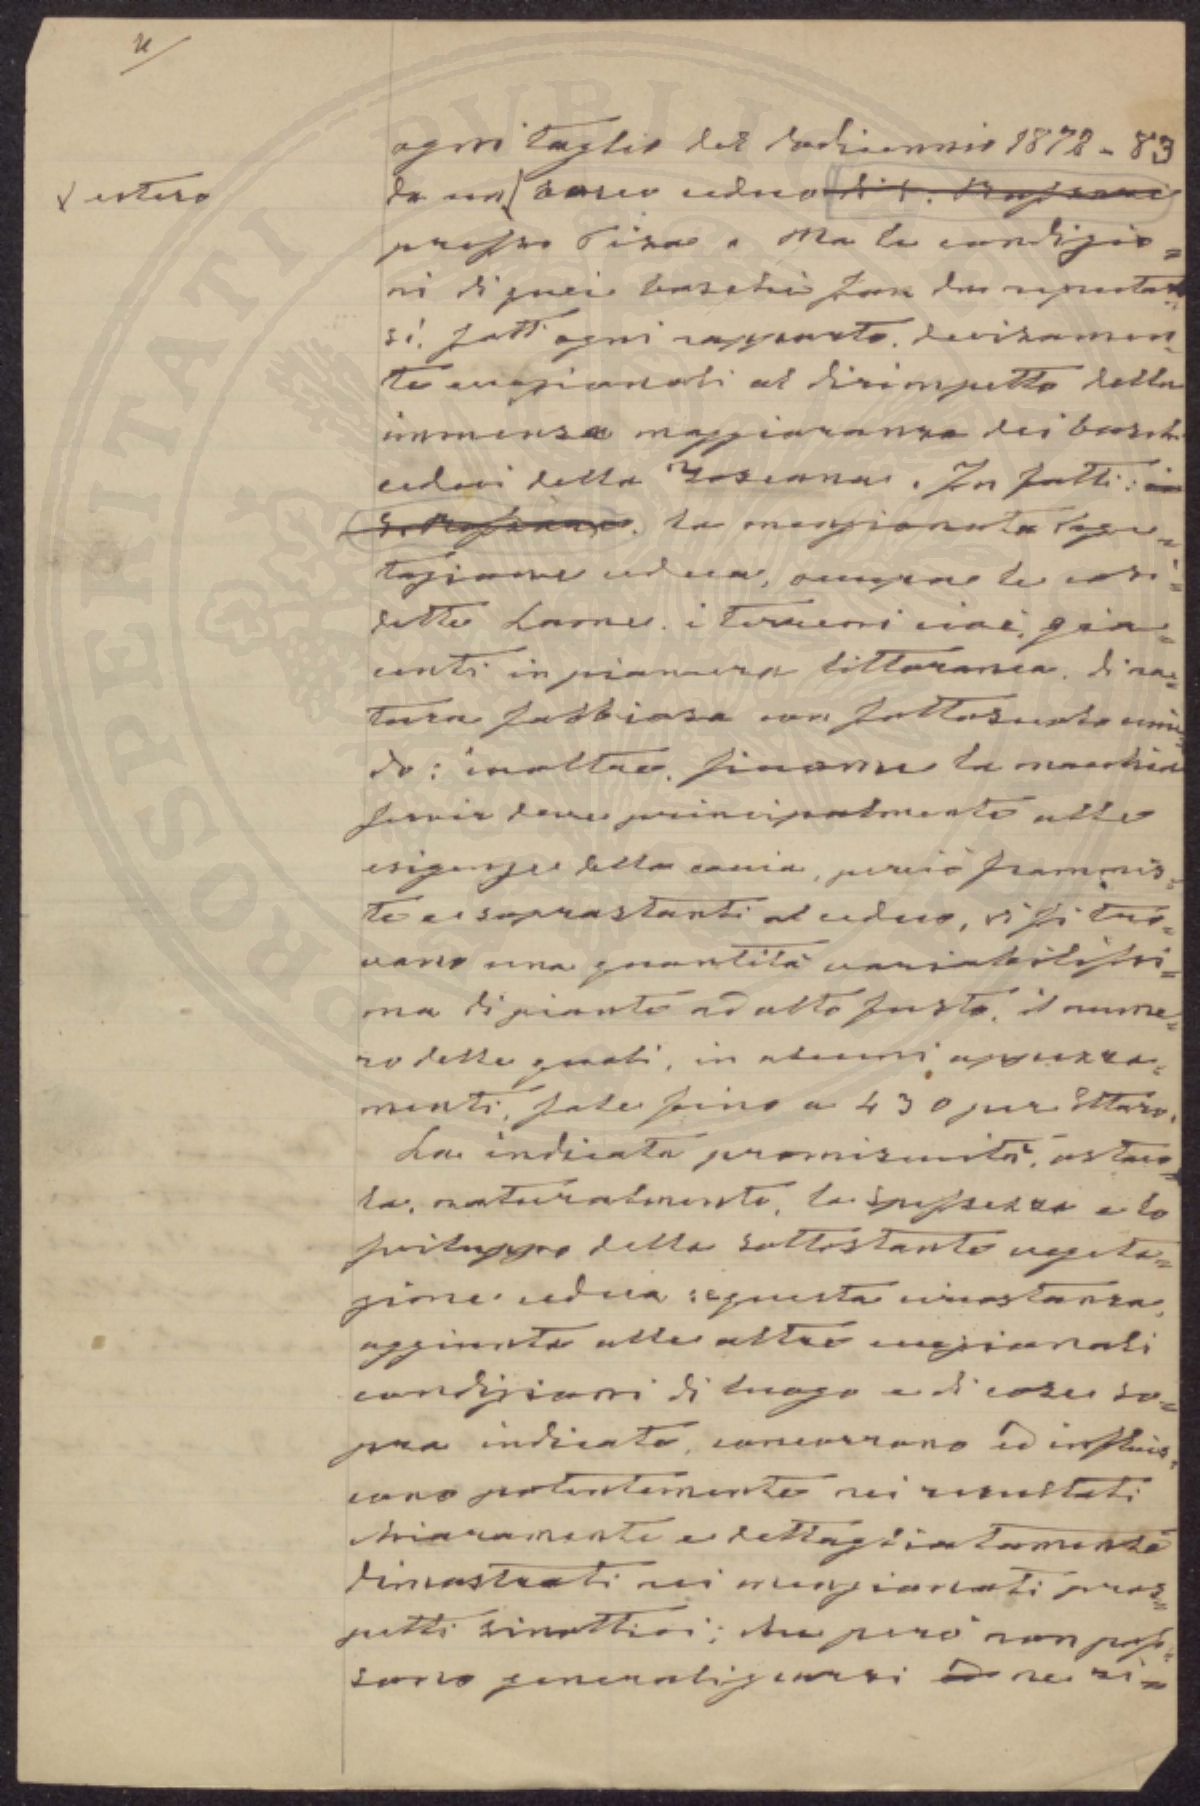 ogni taglio del dodicennio 1872 - 83
√ estero
da un √ bosco ceduo di S. Rossore
presso Pisa. Ma le condizio=
ni di quei boschi fan da reputar=
si, sott' ogni rapporto, decisamen=
te eccezionali al dirimpetto della
immensa maggioranza dei boschi
cedui della Toscana. In fatti: in
S. Rossore, la menzionata vege=
tazione cedua, occupa le cosi=
dette Lame, i terreni cioè, gia=
centi in pianura littoranea, di na=
tura sabbiosa con sottosuolo umi=
do: inoltre, siccome la macchia
servir deve principalmente alle
esigenze della caccia, perciò frammis=
te e soprastanti al ceduo, vi si tro=
vano una quantità variabilissi=
ma di piante ad alto fusto, il nume=
ro delle quali, in alcuni appezza=
menti, sale fino a 430 per Ettaro.
La indicata promiscuità, ostaco=
la, naturalmente, la spessezza e lo
sviluppo della sottostante vegeta=
zione cedua: e questa circostanza,
aggiunta alle altre eccezionali
condizioni di luogo e di cose so=
pra indicate, concorrono ed influis=
cono potentemente nei resultati
chiaramente e dettagliatamente
dimostrati nei menzionati pros=
petti sinottici; che però non pos=
sono generalizzarsi ed ne ri=